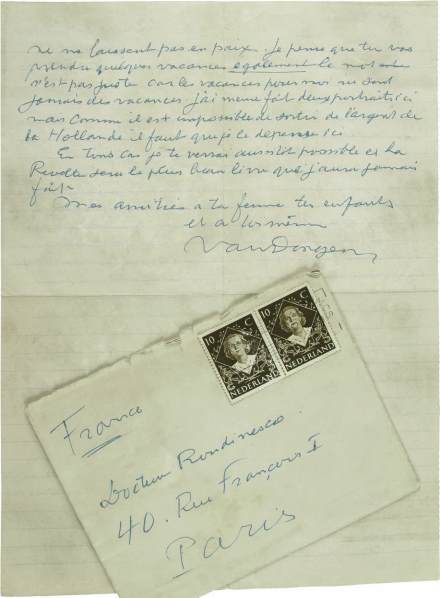 ne me laissent pas en paix. Je pense que tu vas
prendre quelques vacances également le mot
n'est pas juste car les vacances pour moi ne sont
jamais des vacances j'ai même fait deux portraits ici
mais comme il est impossible de sortir de l'argent de
la Hollande il faut que je le dépense ici
En tous cas je te verrai aussitôt possible et La
Révolte sera le plus beau livre que j'aurai jamais
fait.
Mes amitiés à ta femme tes enfants
et a toi même
Van Dongen
10 C
NEDERLAND
10 C
NEDERLAND
France
Docteur Roudinesco
40. Rue François I
Paris